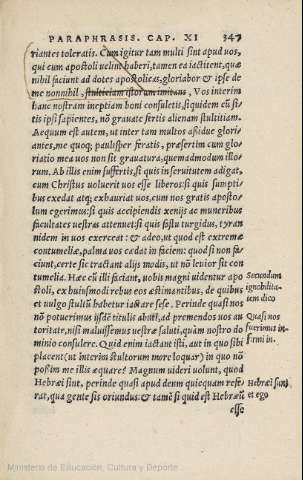 PARAPHRASIS. CAP. XI 347
riantes toleratis. Cum igitur tam multi sint apud uos,
qui cum apostoli uelint haberi, tamen ea iactitent, quæ
nihil faciunt ad dotes apostolicas, gloriabor & ipse de
me nonnihil, stulticiam istorum imitans, Vos interim
hanc nostram ineptiam boni consuletis, siquidem cū si-
tis ipsi sapientes, nō grauate fertis alienam stultitiam.
Aequum est autem, ut inter tam multos assidue glori-
antes, me quoq; paulisper feratis, præsertim cum glo-
riatio mea uos non sit grauatura, quemadmodum illo-
rum. Ab illis enim suffertis, si quis in seruitutem adigat,
cum Christus uoluerit uos esse liberos: si quis sumpti-
bus exedat atq; exhauriat uos, cum nos gratis aposto-
lum egerimus: si quis accipiendis xenijs ac muneribus
facultates uestras attenuet: si quis fastu turgidus, tyran
nidem in uos exerceat: & adeo, ut quod est extremæ
contumeliæ, palma uos cædat in faciem: quod si non fa-
ciunt, certe sic tractant alijs modis, ut nō leuior sit con
tumelia. Hæc cū illi faciant, uobis magni uidentur apo
stoli, ex huiusmodi rebus eos æstimantibus, de quibus
et uulgo stultū habetur iactare sese. Perinde quasi nos
nō potuerimus ijsdē titulis abuti, ad premendos uos au
toritate, nisi maluissemus uestræ saluti, quàm nostro do
minio consulere. Quid enim iactant isti, aut in quo sibi
placent (ut interim stultorum more loquar) in quo nō
possim me illis æquare? Magnum uideri uolunt, quod
Hebræi sint, perinde quasi apud deum quicquam refe-
rat, qua gente sis oriundus: & tamē si quid est Hebræū
esse
Secundum
ignobilita-
tem dico
Quasi nos
fuerimus in-
firmi in.
Hebræi sunt
et ego
Ministerio de Educación, Cultura y Deporte